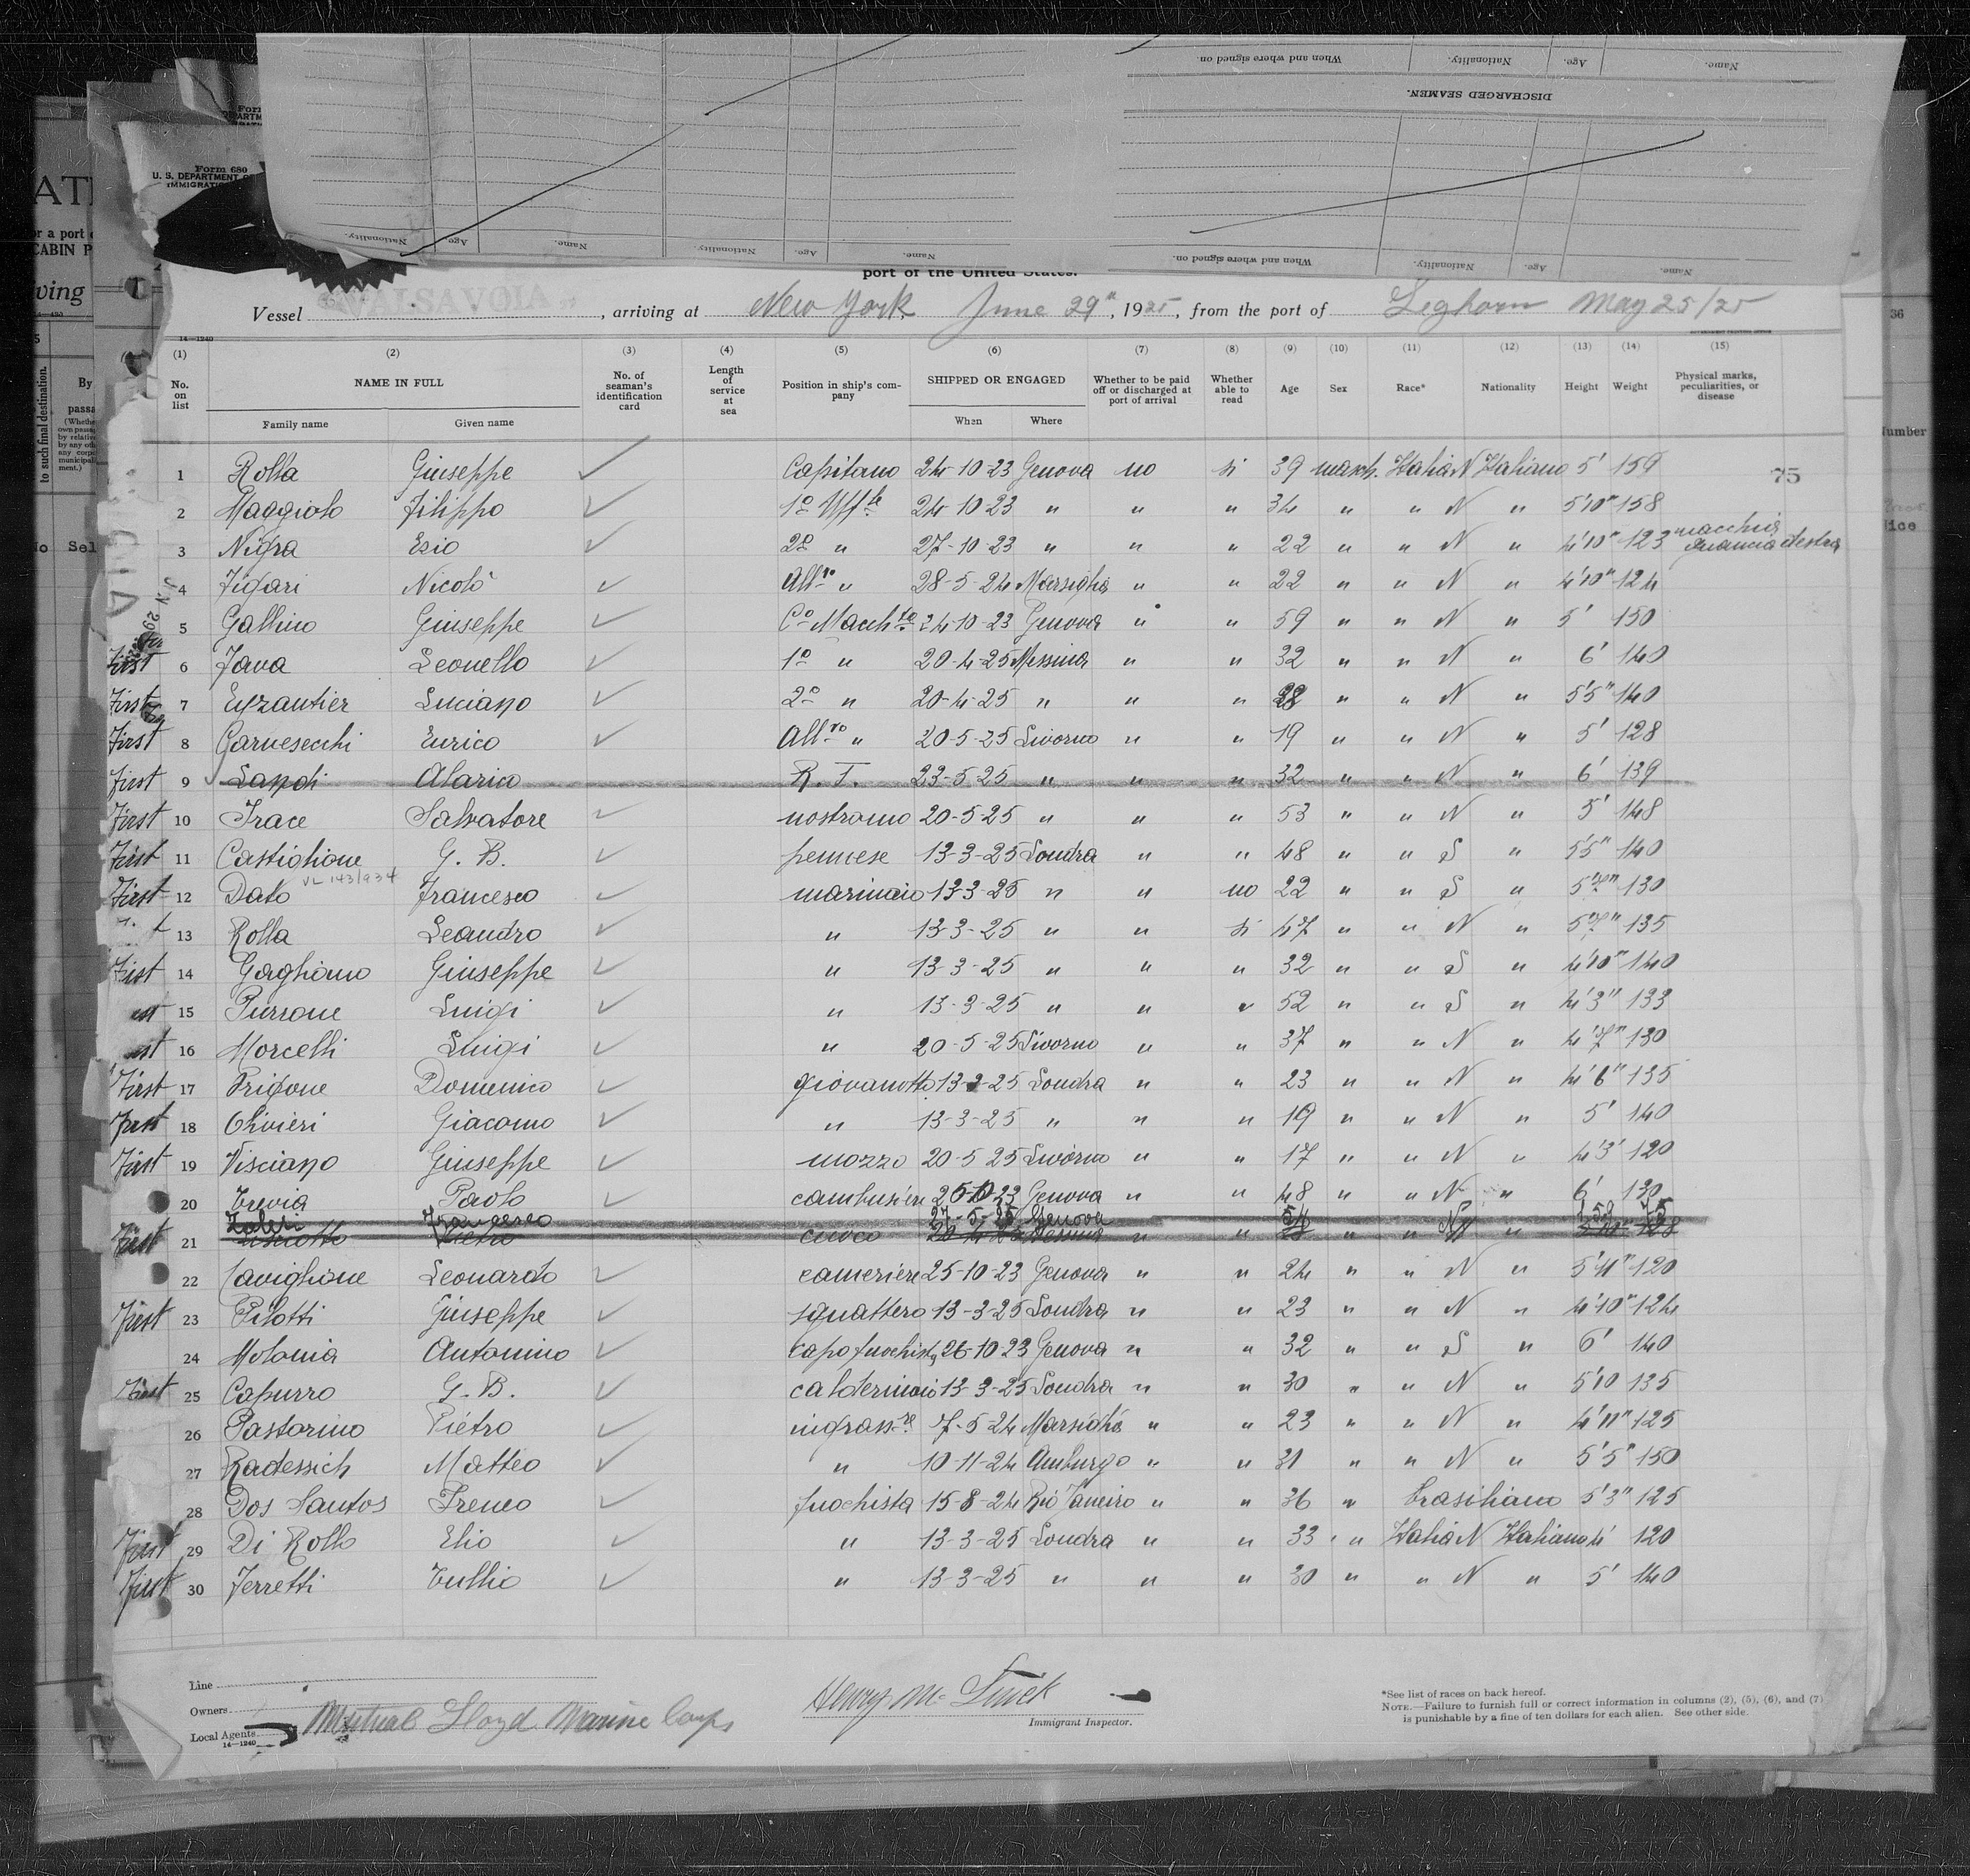 When and where signed on. Nationality. Age. Name.
DISCHARGED SEAMEN.
Form 680
U. S. DEPARTMENT
IMMIGRATION
Nationality. Age. Name. Nationality. Age. Name. When and where signed on. Nationality. Age. Name.
port of the United States.
Vessel VALSAVOIA, arriving at New York, June 29", 1925, from the port of Leghorn May 25/25
14—1240
(1) (2) (3) (4) (5) (6) (7) (8) (9) (10) (11) (12) (13) (14) (15)
No. on list NAME IN FULL No. of seaman's identification card Length of service at sea Position in ship's company SHIPPED OR ENGAGED Whether to be paid off or discharged at port of arrival Whether able to read Age Sex Race* Nationality Height Weight Physical marks, peculiarities, or disease
Family name Given name When Where
1 Rolla Giuseppe Capitano 24-10-23 Genova no si 39 masch. Italia N Italiano 5' 159 75
2 Maggiolo Filippo 1º Uff.le 24-10-23 " " " 34 " " N " 5'10" 158
3 Nigra Esio 2º " 27-10-23 " " " 22 " " N " 4'10" 123 macchia guancia destra
4 Figari Nicolò All.vo " 28-5-24 Marsiglia " " 22 " " N " 4'10" 124
5 Gallino Giuseppe Cº Macch.ta 24-10-23 Genova " " 59 " " N " 5' 150
First 6 Fava Leonello 1º " 20-4-25 Messina " " 32 " " N " 6' 140
First 7 Luciano 2º " 20-4-25 " " " 28 " " N " 5'5" 140
First 8 Garnesecchi Enrico All.vo " 20-5-25 Livorno " " 19 " " N " 5' 128
First 9 Landi Alarico R. T. 23-5-25 " " " 32 " " N " 6' 139
First 10 Irace Salvatore nostromo 20-5-25 " " " 53 " " N " 5' 148
First 11 Castiglione G. B. pennese 13-3-25 Londra " " 48 " " S " 5'5" 140
First 12 Dato VL 143/934 Francesco marinaio 13-3-25 " " no 22 " " S " 5'7" 130
13 Rolla Leandro " 13-3-25 " " si 47 " " N " 5'7" 135
First 14 Gagliano Giuseppe " 13-3-25 " " " 32 " " S " 4'10" 140
15 Pirrone Luigi " 13-3-25 " " " 52 " " S " 4'3" 133
16 Morcelli Luigi " 20-5-25 Livorno " " 37 " " N " 4'7" 130
First 17 Prigone Domenico giovanotto 13-3-25 Londra " " 23 " " N " 4'6" 135
First 18 Olivieri Giacomo " 13-3-25 " " " 19 " " N " 5' 140
First 19 Visciano Giuseppe mozzo 20-5-25 Livorno " " 17 " " N " 4'3' 120
20 Trevia Paolo cambusiere 26-10-23 Genova " " 48 " " N " 6' 130
Francesco 27-5-25 Genova 54 N 1.59 75
First 21 Pietro cuoco Messina " " " " "
22 Caviglione Leonardo cameriere 25-10-23 Genova " " 24 " " N " 5'4" 120
First 23 Pilotti Giuseppe sguattero 13-3-25 Londra " " 23 " " N " 4'10" 124
24 Molonia Antonino capo fuochista 26-10-23 Genova " " 32 " " S " 6' 140
First 25 Capurro G. B. calderinaio 13-3-25 Londra " " 30 " " N " 5'10 135
26 Pastorino Pietro ingrass.re 7-5-24 Marsiglia " " 23 " " N " 4'11" 125
27 Radessich Matteo " 10-11-24 Amburgo " " 31 " " N " 5'5" 150
28 Dos Santos Ireneo fuochista 15-8-24 Rio Janeiro " " 36 " brasiliano 5'3" 125
First 29 Di Rollo Elio " 13-3-25 Londra " " 33 " Italia N Italiano 4' 120
First 30 Ferretti Tullio " 13-3-25 " " " 30 " " N " 5' 140
Line
Owners
Local Agents Mutual Lloyd Marine Corps
14—1240
Immigrant Inspector.
*See list of races on back hereof.
NOTE.—Failure to furnish full or correct information in columns (2), (5), (6), and (7)
is punishable by a fine of ten dollars for each alien. See other side.